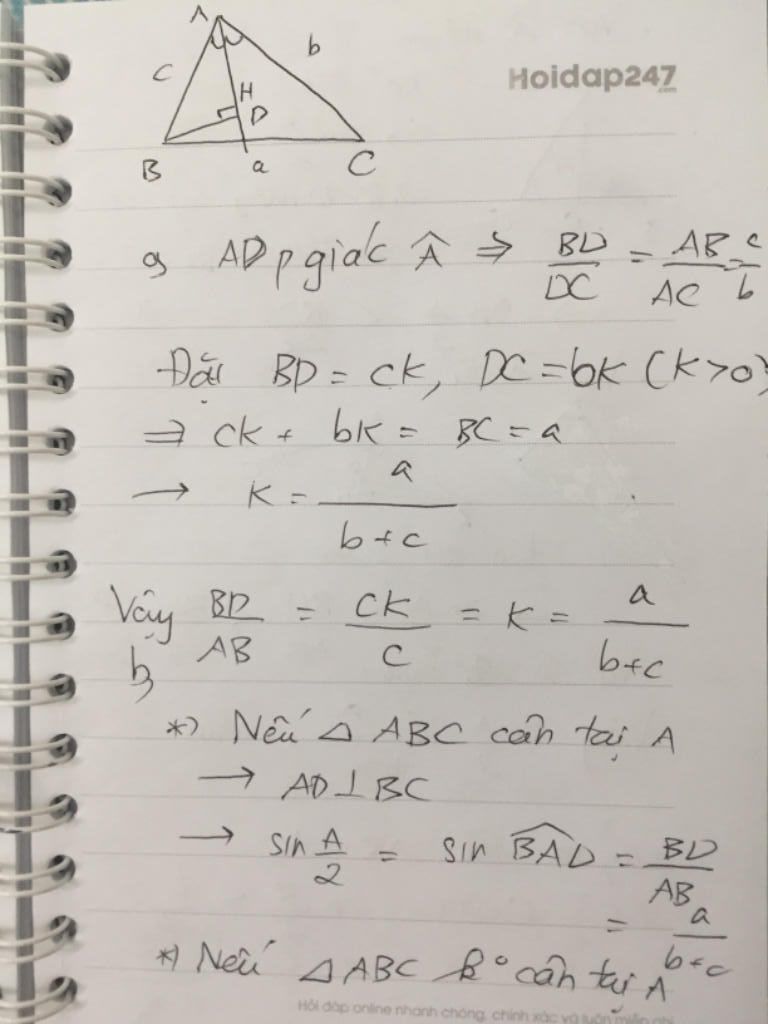 A
c
b
H
D
B
a
C
Hoidap247
.com
a, AD p giác Â ⇒ BD/DC = AB/AC = c/b
Đặt BD = ck, DC = bk (k>0)
⇒ ck + bk = BC = a
→ k = a/(b+c)
Vậy BD/AB = ck/c = k = a/(b+c)
b,
*) Nếu △ABC cân tại A
→ AD⊥BC
→ sin A/2 = sin \widehat{BAD} = BD/AB
= a/(b+c)
*) Nếu △ABC k° cân tại A
Hỏi đáp online nhanh chóng, chính xác và luôn miễn phí